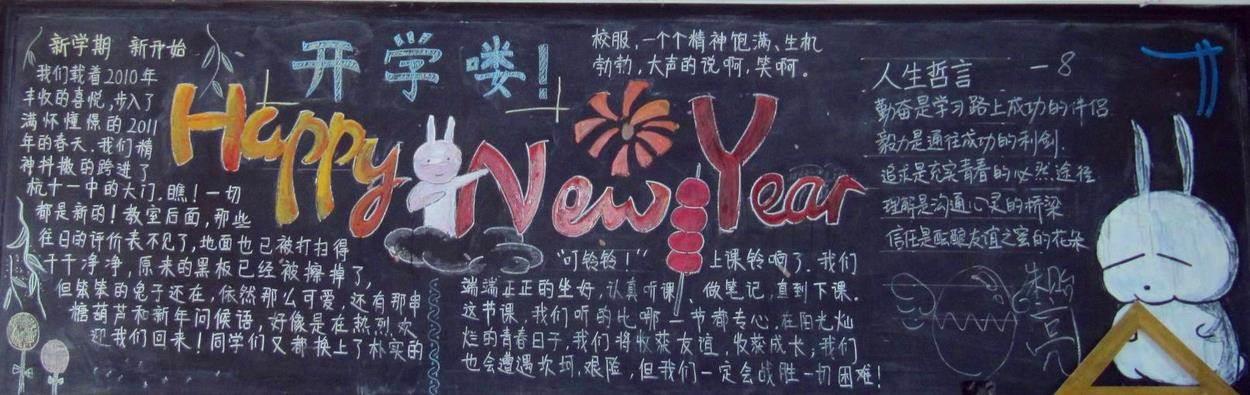 新学期 新开始
我们载着2010年
丰收的喜悦,步入了
满怀憧憬的2011
年的春天.我们精
神抖擞的跨进了
杭十一中的大门.瞧!一切
都是新的!教室后面,那些
往日的评价表不见了,地面也已被打扫得
干干净净,原来的黑板已经被擦掉了,
但笨笨的兔子还在,依然那么可爱.还有那串
糖葫芦和新年问候语,好像是在热烈欢
迎我们回来!同学们又都换上了朴实的
开学喽!
Happy New Year
校服,一个个精神饱满、生机
勃勃,大声的说啊,笑啊。
"叮铃铃!" 上课铃响了.我们
端端正正的坐好,认真听课、做笔记,直到下课.
这节课,我们听的比哪一节都专心.在阳光灿
烂的青春日子,我们将收获友谊,收获成长;我们
也会遭遇坎坷.艰险,但我们一定会战胜一切困难!
人生哲言 一8
勤奋是学习路上成功的伴侣
毅力是通往成功的利剑.
追求是充实青春的必然途径
理解是沟通心灵的桥梁
信任是酝酿友谊之蜜的花朵